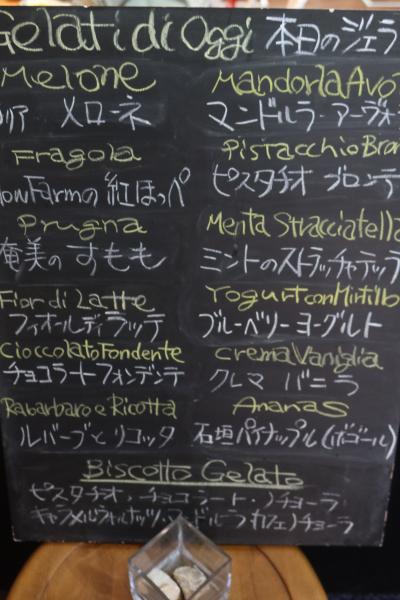 Gelati di Oggi 本日のジェラ
Melone
メローネ
Fragola
Farmの 紅ほっぺ
Prugna
奄美の すもも
Fior di Latte
フィオールディラッテ
Cioccolato Fondente
チョコラートフォンデンテ
Rabarbaro e Ricotta
ルバーブとリコッタ
Mandorla Avo
マンドルラ・アーヴォ
Pistacchio Bron
ピスタチオ ブロンテ
Menta Stracciatella
ミントのストラッチャテッラ
Yogurt con Mirtillo
ブルーベリーヨーグルト
Crema Vaniglia
クレマ バニラ
Ananas
石垣パイナップル(ボゴール)
Biscotto Gelato
ピスタチオ・チョコラート・ノチョーラ
キャラメルウォルナッツ・マンドルラ カフェノチョーラ